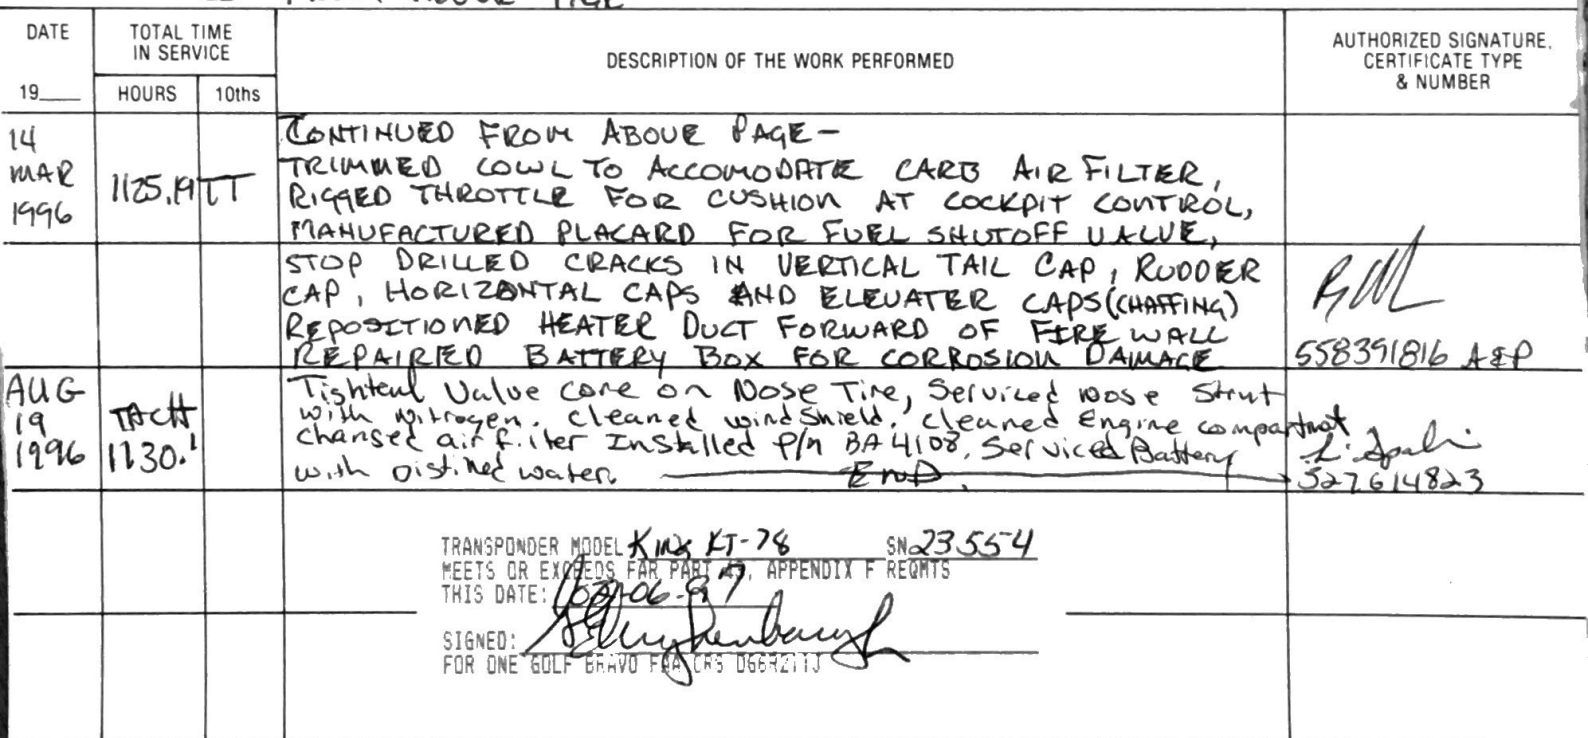 DATE
19___
TOTAL TIME
IN SERVICE
HOURS 10ths
DESCRIPTION OF THE WORK PERFORMED
AUTHORIZED SIGNATURE,
CERTIFICATE TYPE
& NUMBER
14
MAR
1996
1125.19 TT
CONTINUED FROM ABOVE PAGE-
TRIMMED COWL TO ACCOMODATE CARB AIR FILTER,
RIGGED THROTTLE FOR CUSHION AT COCKPIT CONTROL,
MANUFACTURED PLACARD FOR FUEL SHUTOFF VALVE,
STOP DRILLED CRACKS IN VERTICAL TAIL CAP, RUDDER
CAP, HORIZONTAL CAPS AND ELEVATER CAPS (CHAFFING)
REPOSITIONED HEATER DUCT FORWARD OF FIRE WALL
REPAIRED BATTERY BOX FOR CORROSION DAMAGE
558391816 A&P
AUG
19
1996
TACH
1130.1
Tightend Valve core on Nose Tire, Serviced nose Strut
with Nitrogen, cleaned windshield, cleaned Engine compartmnt
changed air filter Installed P/n BA4108, Serviced Battery
with Distilled water. END.
527614823
TRANSPONDER MODEL King KT-78 SN 23554
MEETS OR EXCEEDS FAR PART 43, APPENDIX F REQMTS
THIS DATE: 06-97
SIGNED:
FOR ONE GOLF BRAVO FAA CRS